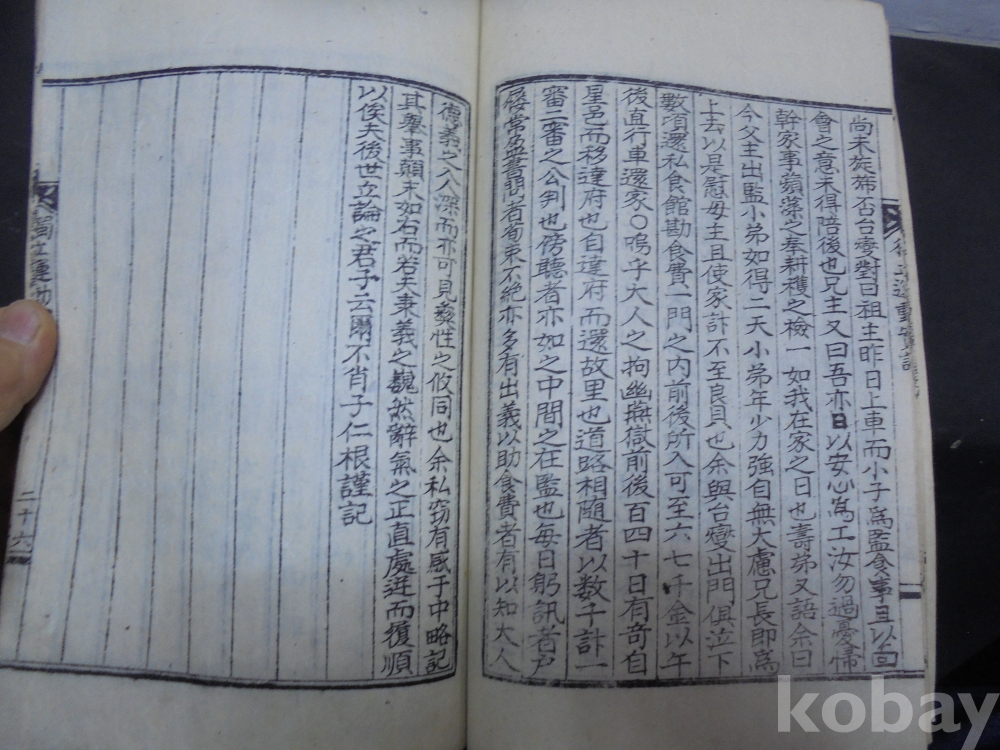 尚未旋旆否台燮對曰祖主昨日上車而小子爲監食事且以面
會之意未得陪後也兄主又曰吾亦日以安心爲工汝勿過憂歸
幹家事蘋藻之奉耕穫之檢一如我在家之日也壽弟又語余曰
今父主出監小弟如得二天小弟年少力強自無大慮兄長即爲
上去以是慰母主且使家計不至良貝也余與台燮出門俱泣下
數項還私食館勘食費一門之內前後所入可至六七千金以午
後直行車還家○嗚乎大人之拘幽無獄前後百四十日有奇自
星邑而移達府也自達府而還故里也道路相隨者以数千計一
審二審之公判也傍聽者亦如之中間之在監也每日躬訊者戶
屨常滿書問者荀束不絶亦多有出義以助食費者有以知大人
德義之入人深而亦可見彜性之攸同也余私窃有感于中略記
其擧事顚末如右而若夫秉義之巍然辭氣之正直處逆而履順
以俟夫後世立論之君子云爾不肖子仁根謹記
二十六
kobay